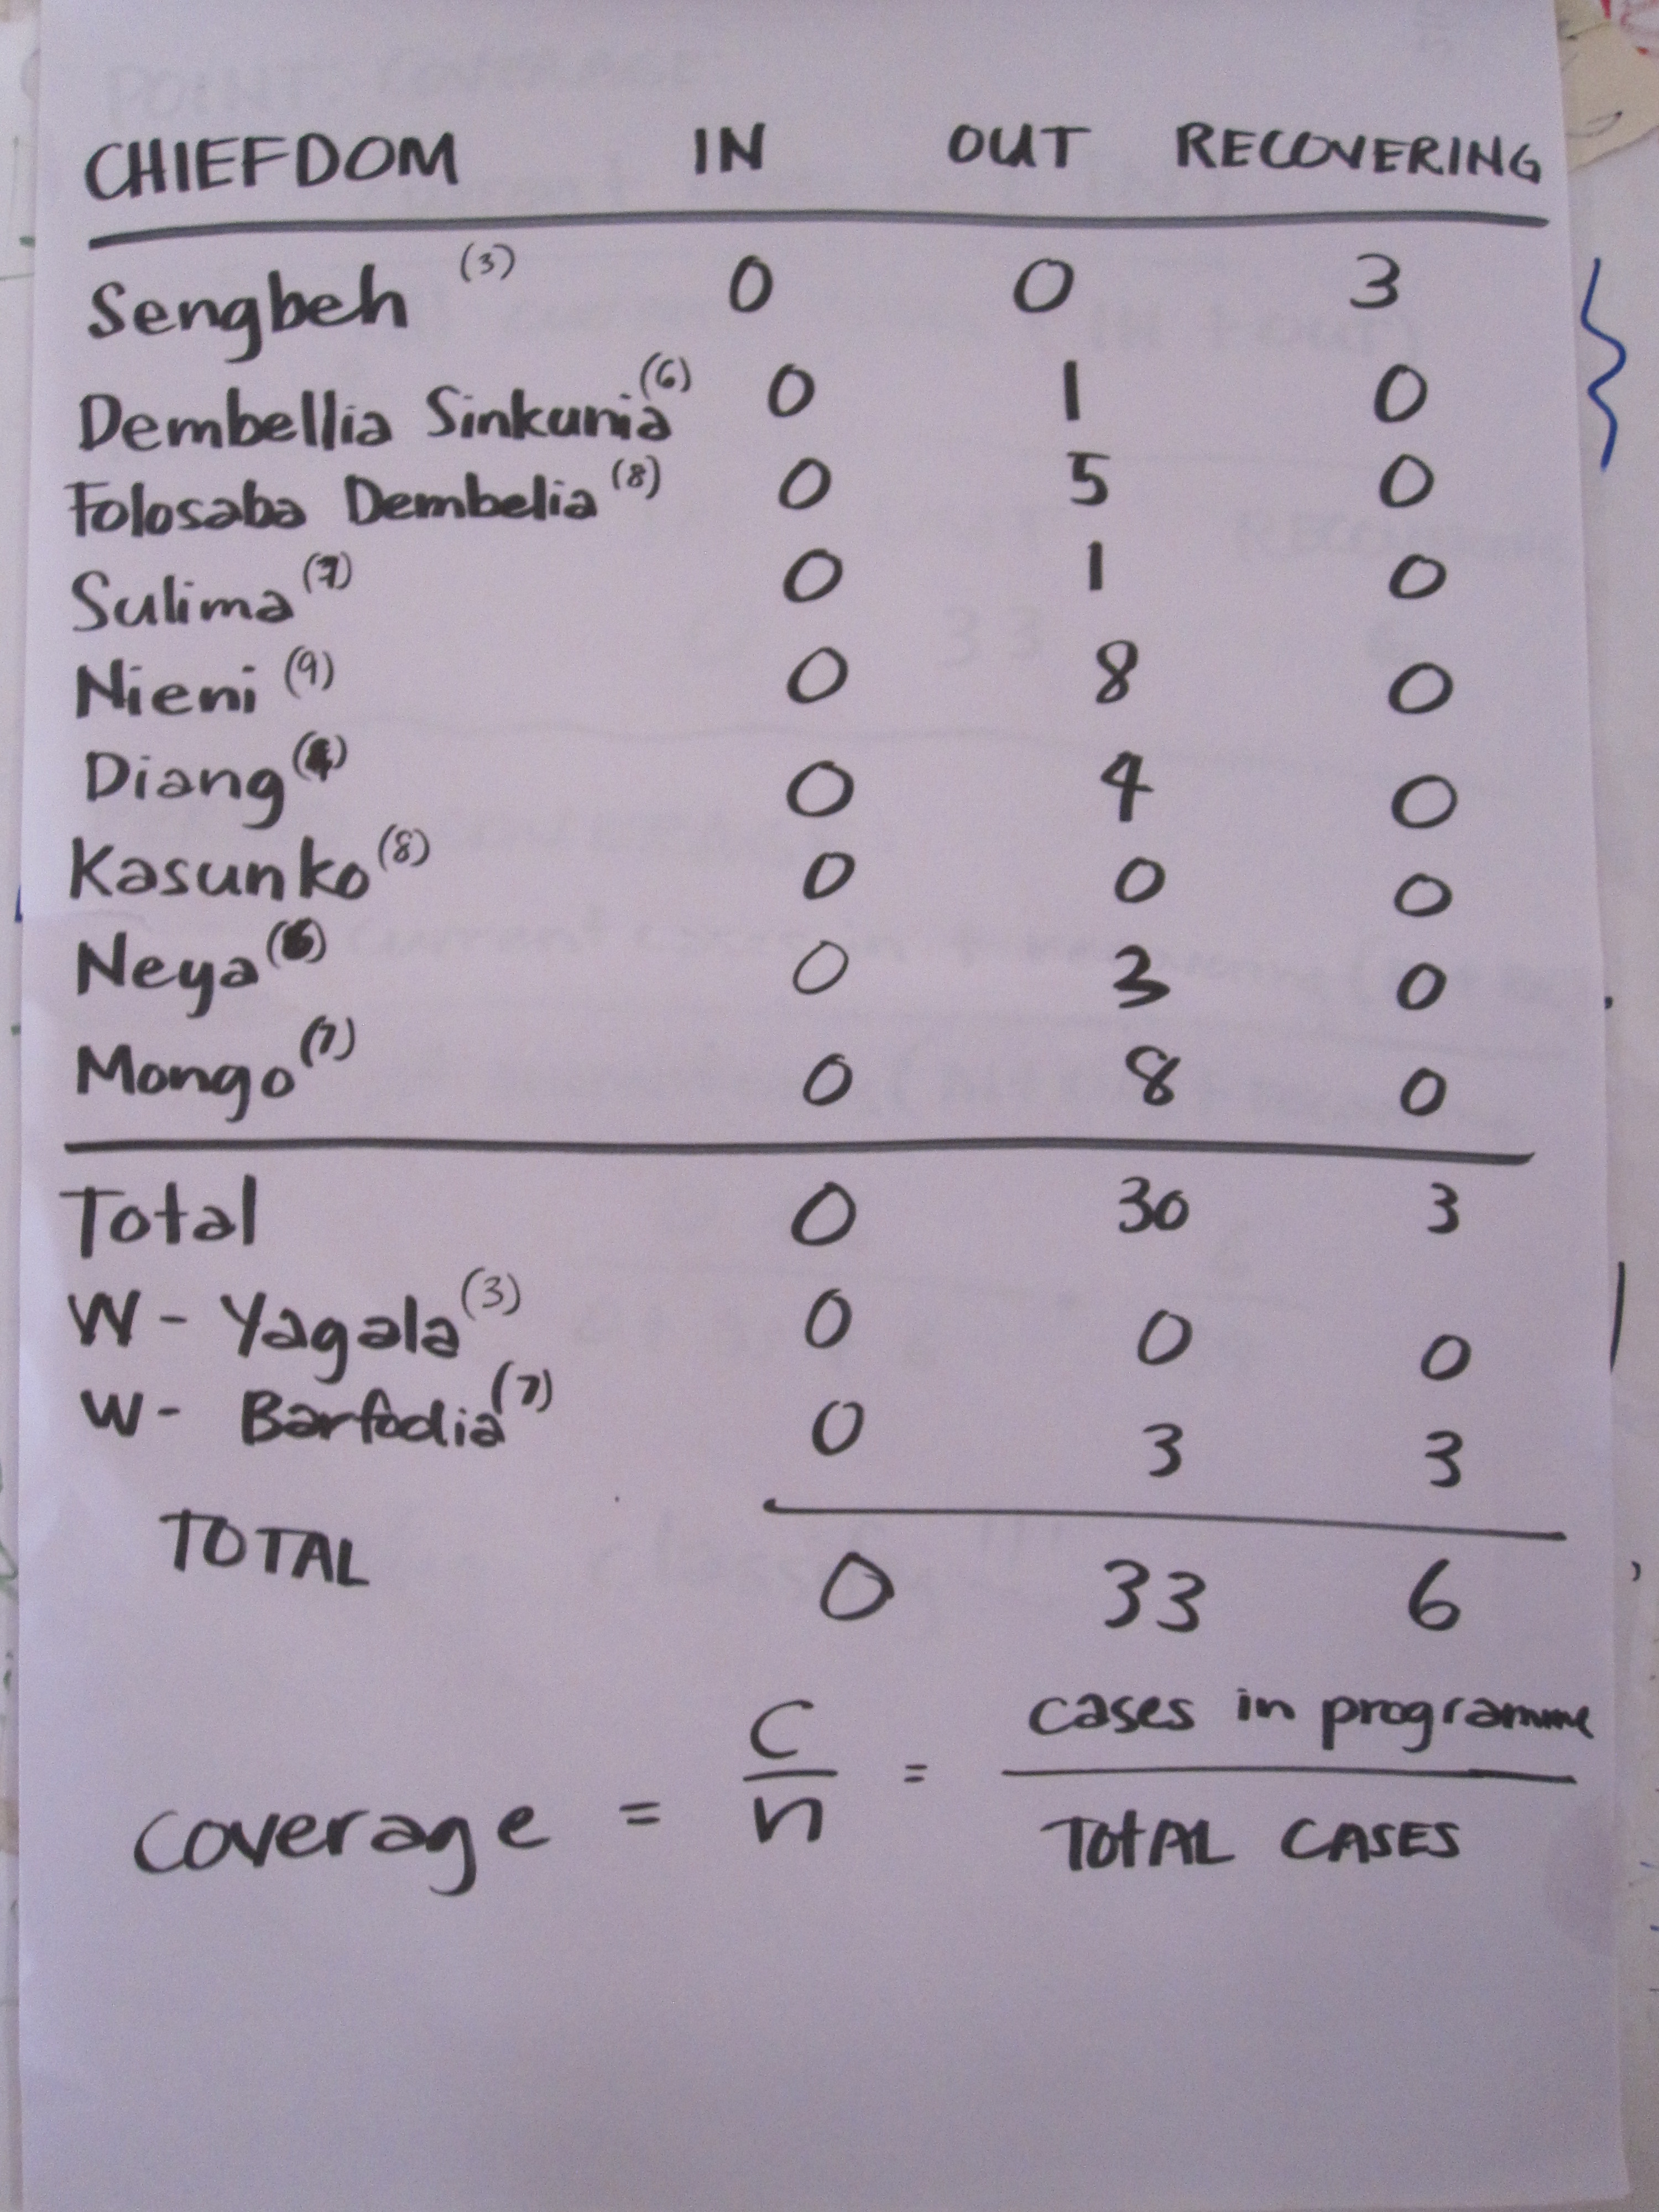 CHIEFDOM IN OUT RECOVERING
Sengbeh (3) 0 0 3
Dembellia Sinkunia (6) 0 1 0
Folosaba Dembelia (8) 0 5 0
Sulima (7) 0 1 0
Nieni (9) 0 8 0
Diang 0 4 0
Kasunko (8) 0 0 0
Neya 0 3 0
Mongo (7) 0 8 0
Total 0 30 3
W - Yagala (3) 0 0 0
W - Barfodia (7) 0 3 3
TOTAL 0 33 6
coverage = C/n = cases in programme / TOTAL CASES